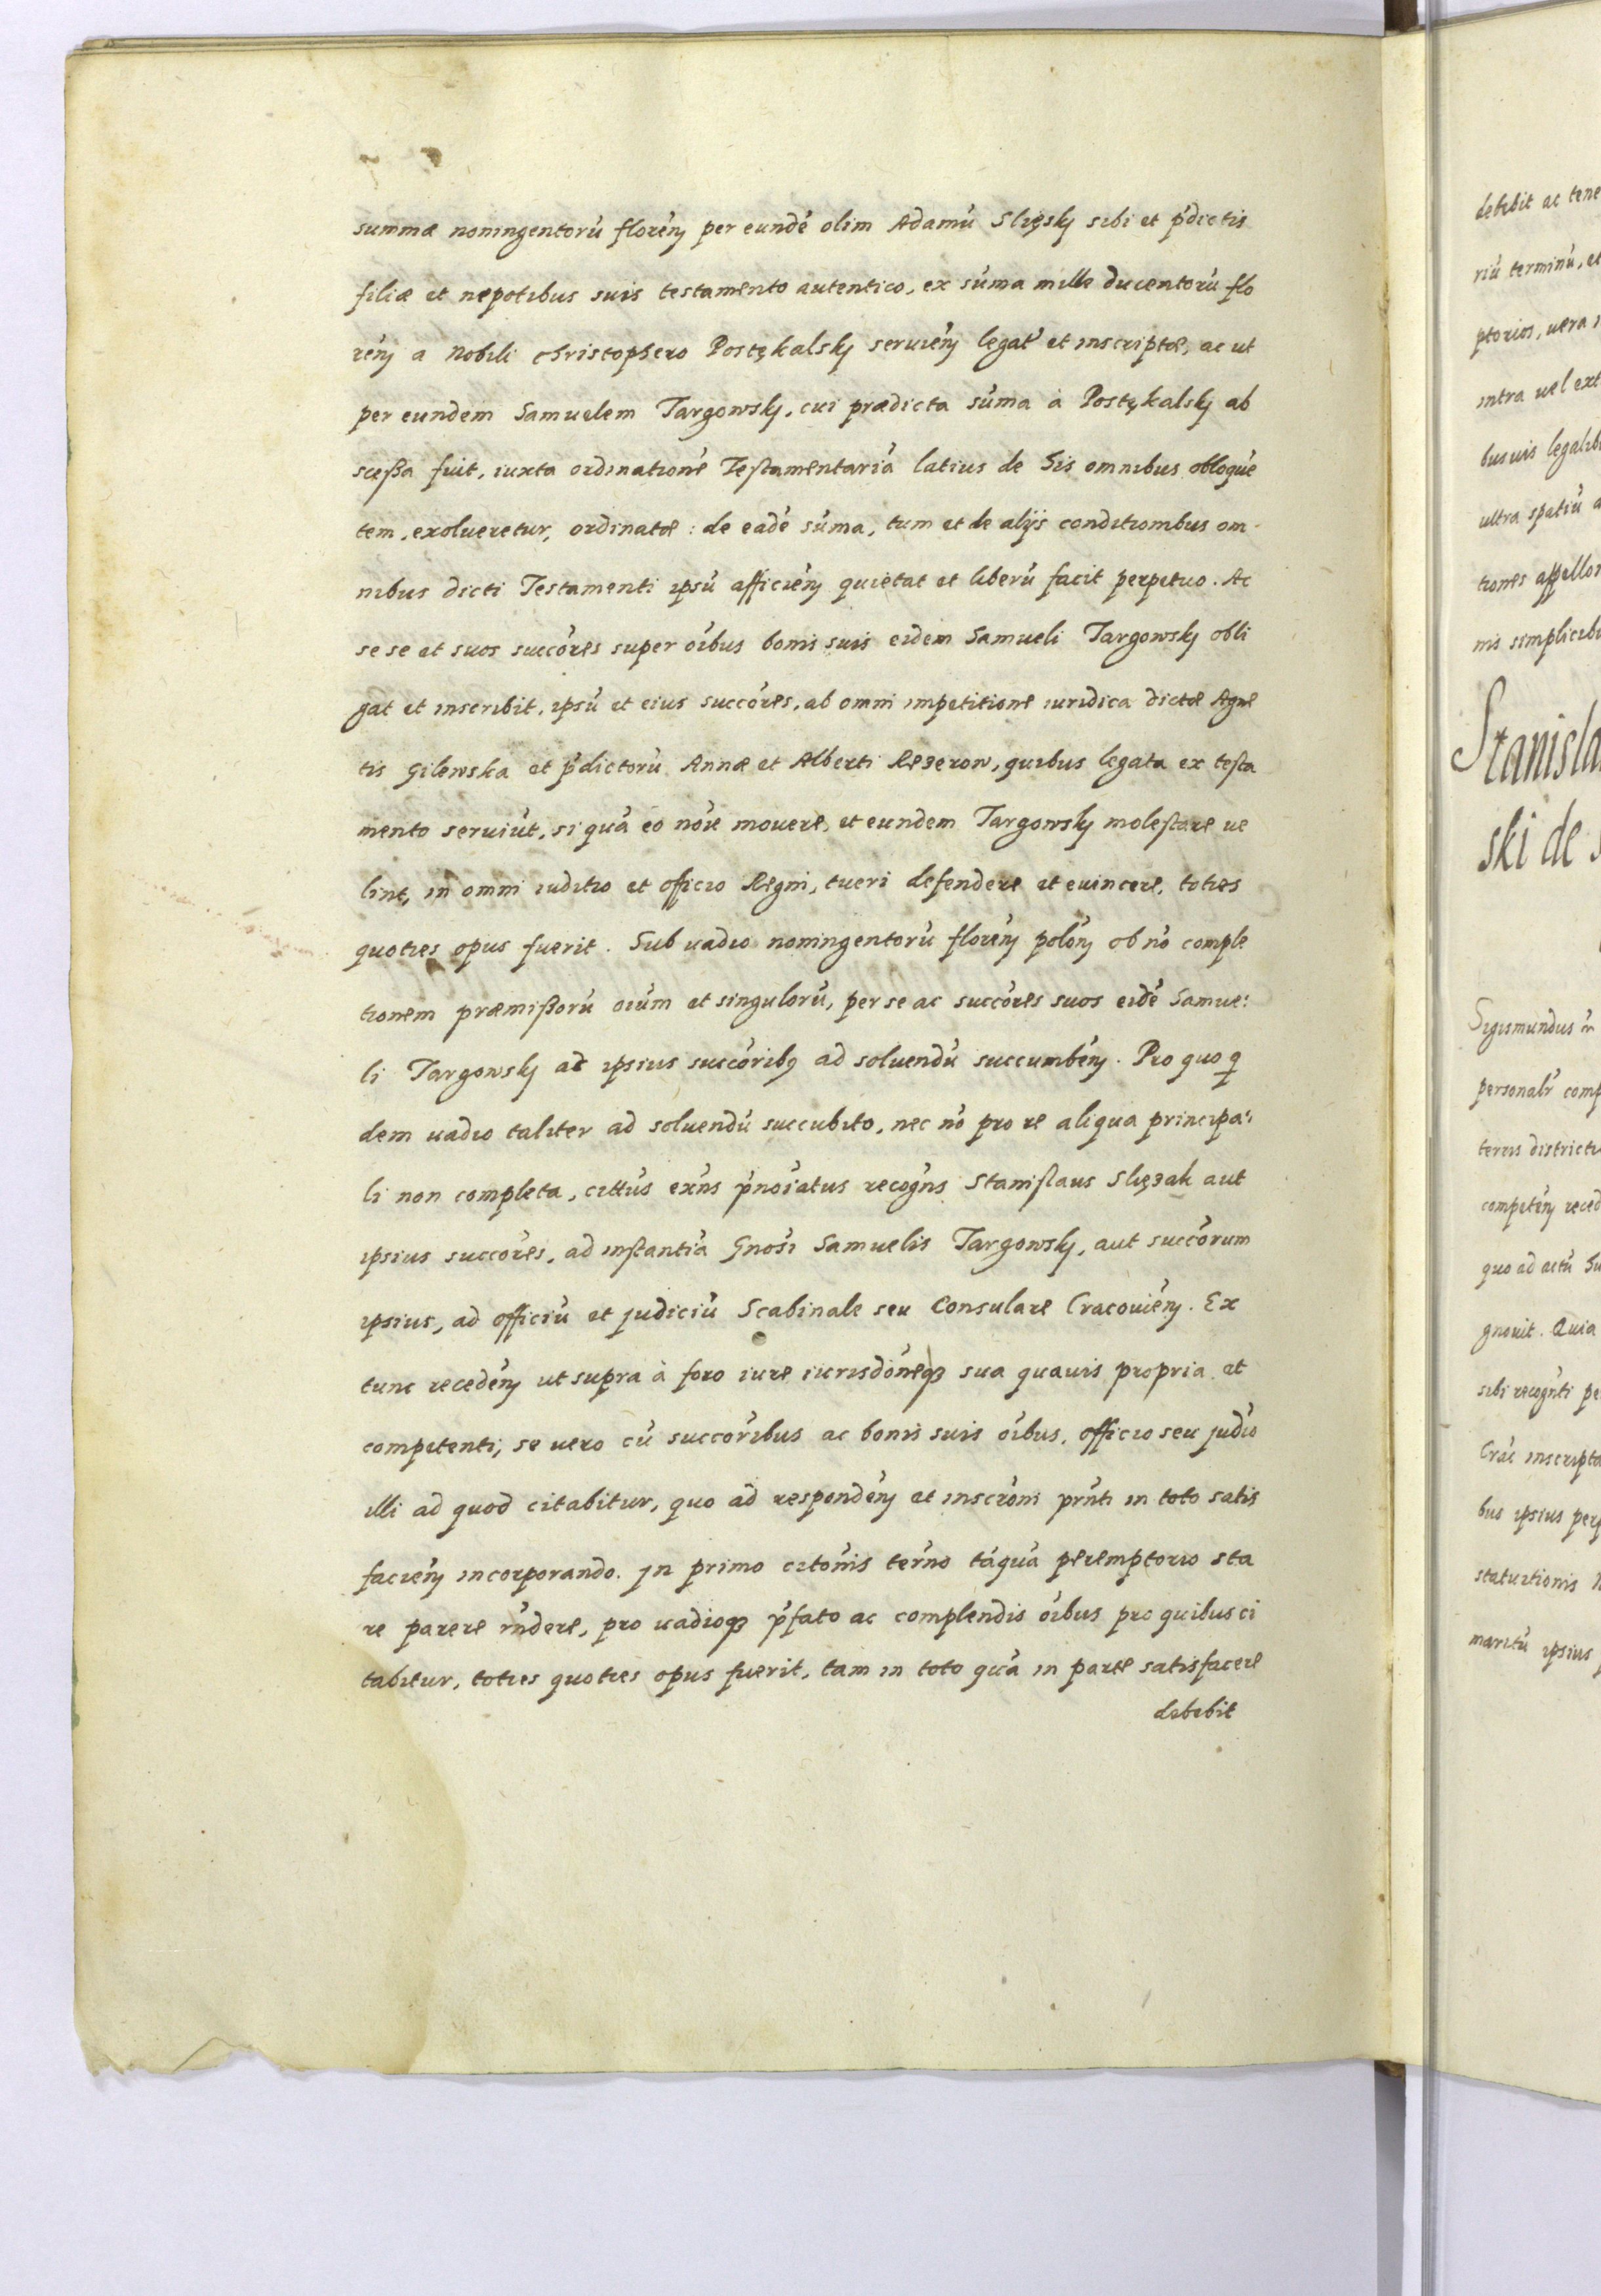 summæ noningentorú floréṅ per eundé olim Adamú Slięskj sibi et ṕdictis
filiæ et nepotibus suis testamento autentico, ex súma mille ducentorú flo
réṅ a Nobili Christophero Postękalskj seruiéṅ legat́ et inscriptæ, ac ut
per eundem Samuelem Targowskj, cui prædicta súma à Postękalskj ab
sceßa fuit, iuxta ordinationé Testamentariá latius de his omnibus obloqúe
tem, exolueretur, ordinatæ : de eadé súma, tum et de alijs conditionibus om-
nibus dicti Testamenti ipsú afficiéṅ quietat et liberú facit perpetuo. Ac
se se et suos succóres super óibus bonis suis eidem Samueli Targowskj obli
gat et inscribit, ipsú et eius succóres, ab omni impetitione iuridica dictæ Agne
tis Gilewska et ṕdictorú Annæ et Alberti Rezerow, quibus legata ex testa
mento seruiút, si quá eo nóie mouere, et eundem Targowskj molestare ue
lint, in omni iuditio et officio Regni, tueri defendere et euincere, toties
quoties opus fuerit. Sub uadio noningentorú floréṅ polóṅ ob nó comple
tionem præmißorú oiúm et singulorú, per se ac succóres suos eidé Samue:
li Targowskj ac ipsius succóribꝯ ad soluendú succumbéṅ. Pro quo q
dem uadio taliter ad soluendú succubito, nec nó pro re aliqua principa:
li non completa, cittús exńs ṕnoíatus recogńs Stanislaus Slięzak aut
ipsius succóres, ad instantiá Gnosí Samuelis Targowskj, aut succórum
ipsius, ad officiú et judiciú Scabinale seu Consulare Cracouiéṅ. Ex
tunc recedéṅ ut supra à foro iure iurisdóneqꝫ sua quauis propria et
competenti, se uero cú succóribus ac bonis suis óibus, officio seu judío
illi ad quod citabitur, quo ad respondéṅ et inscróni prńti in toto satis
faciéṅ incorporando. Jn primo citónis teŕno táquá peremptorio sta
re parere rńdere, pro uadioqꝫ ṕfato ac complendis óibus pro quibus ci
tabitur, toties quoties opus fuerit, tam in toto quá in parte satisfacere
debebit
debebit ac tene
riú terminú, et
ptorios, uera
intra uel ext
busuis legalib
ultra spatiú a
tiones appellon
nis simplicibu
Stanisla
ski de
Sigismundus
personalr comp
terris districtu
competéṅ reced
quo ad actú hu
gnouit. Quia
sibi recogńti pe
Crac inscripta
bus ipsius perp
statuitionis
maritú ipsius